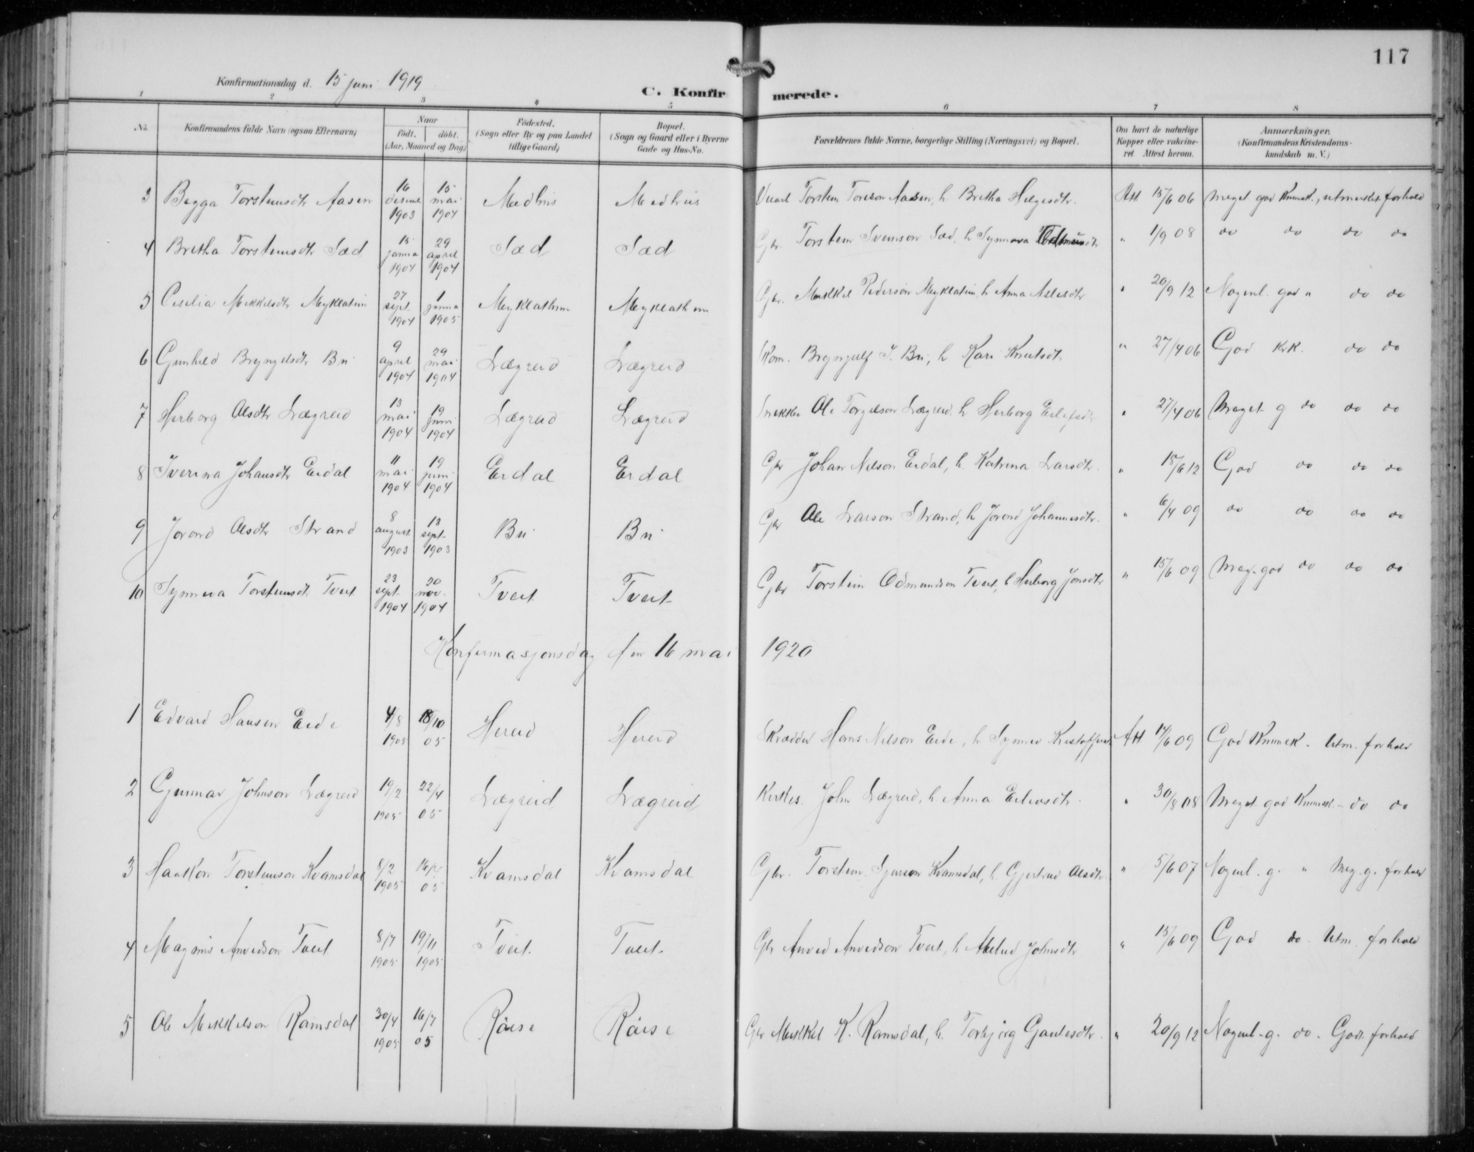 117
Konfirmationsdag d. 15 juni 1919
C. Konfirmerede.
1 2 3 4 5 6 7 8
No.
Konfirmandens fulde Navn (ogsaa Efternavn)
Naar
født. døbt.
(Aar, Maaned og Dag)
Fødested.
(Sogn eller By og paa Landet
tillige Gaard)
Bopæl.
(Sogn og Gaard eller i Byerne
Gade og Hus-No.
Forældrenes fulde Navne, borgerlige Stilling (Næringsvei) og Bopæl.
Om havt de naturlige
Kopper eller vakcine-
ret. Attest herom.
Anmærkninger.
(Konfirmandens Kristendoms-
kundskab m. V.)
3 Bygga Torsteinsdtr Aasen 16 desem 1903 15 mai 1904 Medhus Medhus Torstein Torson Aasen, h. Britha Helgesdtr. Att 15/6 06 Meget god Kunnsk., utmerket forhold
4 Britha Torsteinsdtr Sæd 15 janua 1904 29 april 1904 Sæd Sæd Gbr. Torstein Svenson Sæd, h. Synneva " 1/9 08 do do do do
5 Cecilia Mikkelsdtr Myklatun 27 sept. 1904 1 janua 1905 Myklathun Myklathun Gbr. Mikkel Pederson Myklatun, h. Anna Aslesdtr " 20/9 12 Nogenl. god " do do
6 Gunhild Bryngelsdtr Bu 9 april 1904 29 mai 1904 Lægreid Lægreid Brynjulf I. Bu, h. Kari Knutsdt. " 27/4 06 God Krk. do do
7 Herborg Olsdtr Lægreid 13 mai 1904 19 juni 1904 Lægreid Lægreid Snekker Ole Torgelson Lægreid, h. Herborg " 27/4 06 Meget g do do do
8 Iverina Johansdtr Eidal 11 mai 1904 19 juni 1904 Eidal Eidal Gbr Johan Nilson Eidal, h. Katrina Larsdtr. " 18/6 12 God do do do
9 Jorond Olsdtr Strand 8 august 1903 13 sept. 1903 Bu Bu Gbr Ole Larson Strand, h. Jorond Johannesdtr. " 6/4 09 do do do do
10 Synneva Torsteinsdt. Tveit 23 sept. 1904 20 nov. 1904 Tveit Tveit Gbr Torstein Odmundson Tveit, h. Herborg Jonsdtr " 15/6 09 Meg. god do do do
Konfirmasjonsdag den 16 mai 1920
1 Edvard Hansen Eide 4/8 1905 18/10 05 Hereid Hereid Skrædder Hans Nilson Eide, h. Synnev Att 14/6 09 God Kunnsk. Utm. forhold
2 Gunnar Johnson Lægreid 19/2 1905 22/4 05 Lægreid Lægreid Kirkes. John Lægreid, h. Anna " 30/8 08 Meget god Kunnsk - do do
3 Haakon Torsteinson Kvamsdal 8/2 1905 05 Kvamsdal Kvamsdal Gbr. Torstein Kvamsdal, h. Gjertrud Olsdtr " 5/6 07 Nogenl. g. " Meg. g. forhold
4 Magnus Anvedson Tveit 8/7 1905 19/11 1905 Tveit Tveit Gbr Anved Anvedson Tveit, h. Johnsdtr " 15/6 09 God do. Utm. forhold
5 Ole Mikkelson Ramsdal 30/4 1905 16/7 05 Røise Røise Gbr Mikkel K. Ramsdal, h. Torbjørg Gautesdtr. " 20/9 12 Nogenl. g. do. Godt forhold